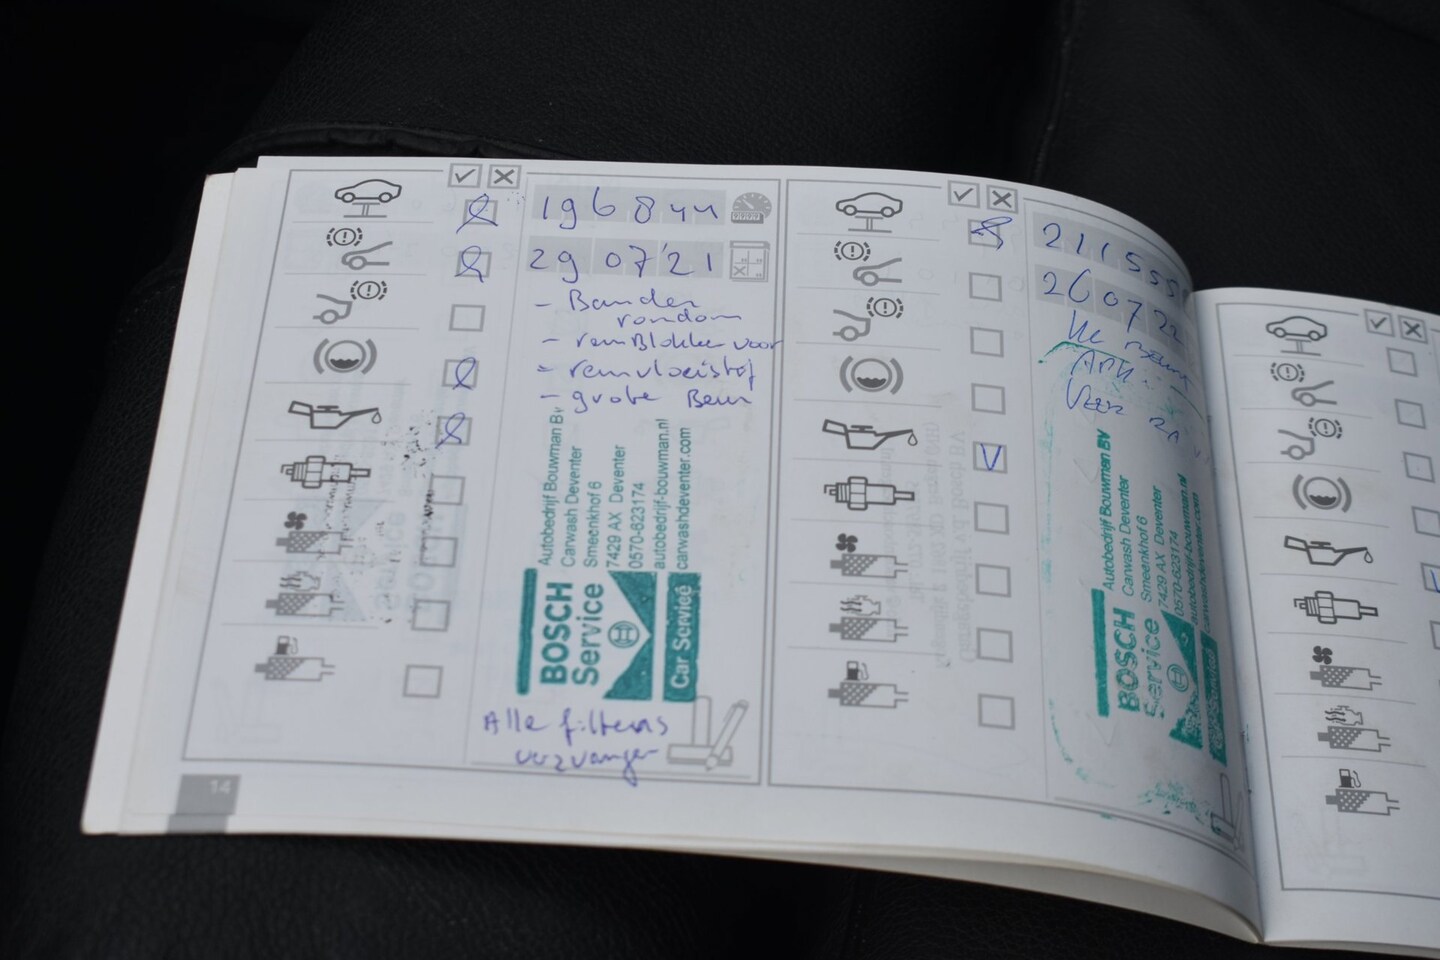 196844
29 07 '21
- Banden
rondom
- remBlokken voor
- remvloeistof
- grote Beurt
Autobedrijf Bouwman BV
Carwash Deventer
Smeenkhof 6
7429 AX Deventer
0570-623174
autobedrijf-bouwman.nl
carwashdeventer.com
BOSCH
Service
Car Service
Alle filters
vervangen
14
211555
26 07 22
APK
Autobedrijf Bouwman BV
Carwash Deventer
Smeenkhof 6
7429 AX Deventer
0570-623174
autobedrijf-bouwman.nl
carwashdeventer.com
BOSCH
Service